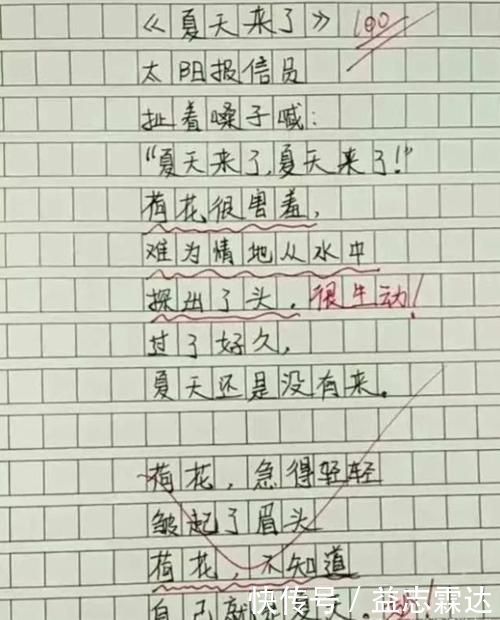 《夏天来了》 100
太阳报信员
扯着嗓子喊：
“夏天来了，夏天来了！”
荷花很害羞，
难为情地从水中
探出了头。很生动！
过了好久，
夏天还是没有来。
荷花，急得轻轻
皱起了眉头
荷花，不知道
自己就是夏天。
快传号 / 益志霖达